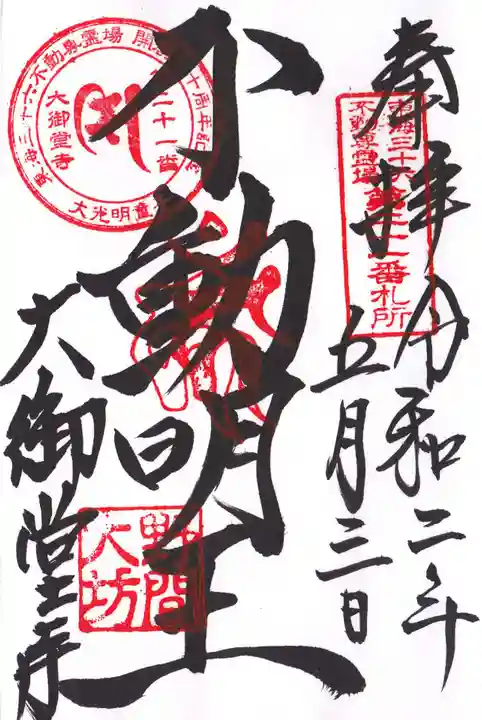 奉拝 令和二年
五月三日
東海三十六
不動尊霊場
第二十一番札所
不動明王
東海三十六不動尊霊場 開創
十周年記念
二十一番
大御堂寺
大光明童
野間
大坊
大御堂寺